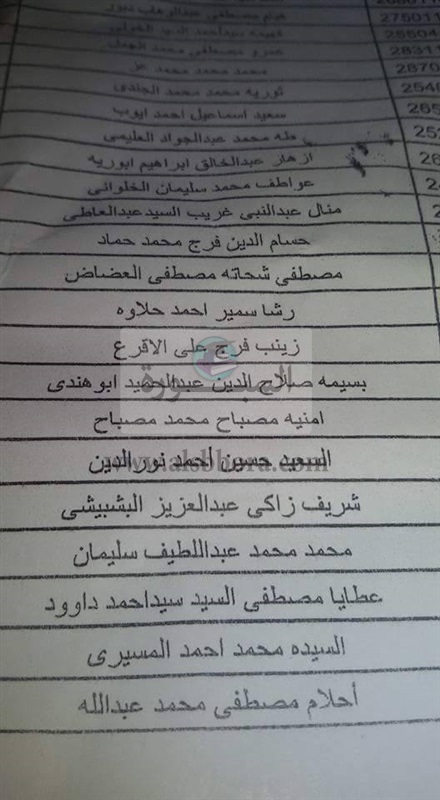 275011
محمد محمد محمد عز
فوزيه محمد محمد الجندى
سعيد اسماعيل احمد ايوب
طه محمد عبدالجواد العليمى
ازهار عبدالخالق ابراهيم ابوريه
عواطف محمد سليمان الخلوانى
منال عبدالنبى غريب السيد عبدالعاطى
حسام الدين فرج محمد حماد
مصطفى شحاته مصطفى العضاض
رشا سمير احمد حلاوه
زينب فرج على الاقرع
بسيمه صلاح الدين عبدالحميد ابوهندى
امنيه مصباح محمد مصباح
السعيد حسين احمد نور الدين
شريف زاكى عبدالعزيز البشبيشى
محمد محمد عبداللطيف سليمان
عطايا مصطفى السيد سيداحمد داوود
السيده محمد احمد المسيرى
أحلام مصطفى محمد عبدالله